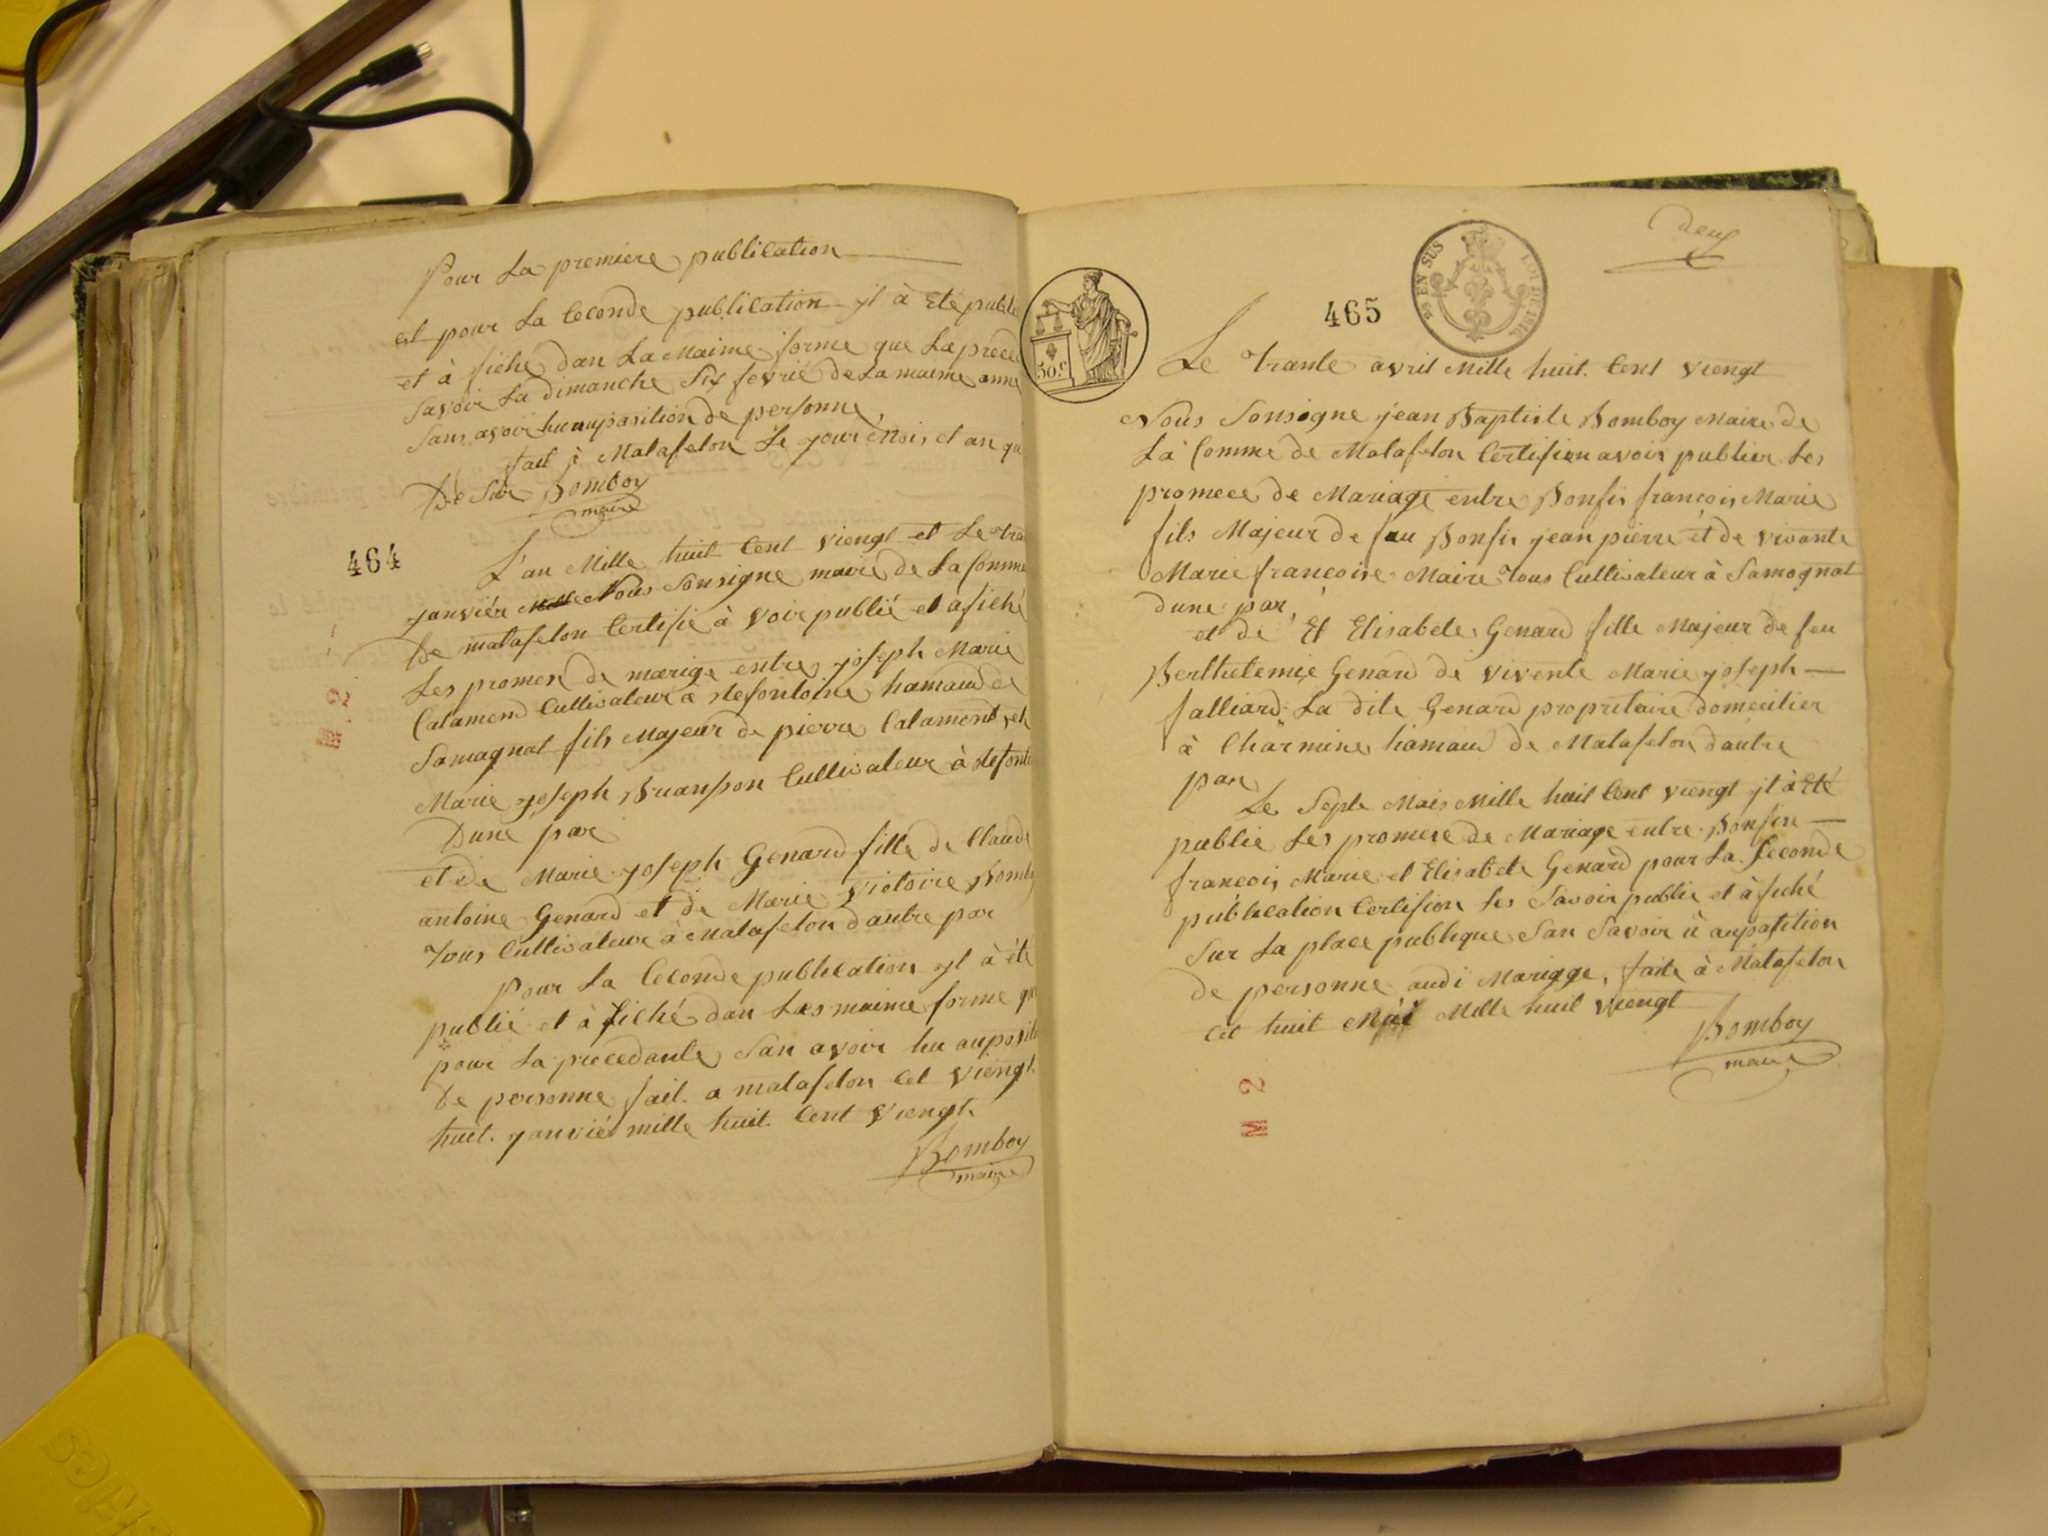 Pour La premiere publication
et pour La Ceconde publication yl à Eté publ
et à fiché dan La Maime forme que La prece
Savoir La dimanche Six fevrié de La maime anne
Sans avoir hu auposition de personne
fait à Matafelon Le jour Mois et an qu
De Sur Bomboy
maire
464
L'an Mille huit Cent viengt et Le tra
janviér Nous Sousigne maire de La Comme
De matafelon Certifié à voir publié et afiché
Les promese de marige entre joseph Marie
Calamend Cultivateur à hamaud de
Samagnat fils Majeur de pierre Calamend et
Marie joseph Cultivateur à
Dune par
et de Marie joseph Genard fille de Claude
antoine Genard et de Marie Victoire Bomb
Tous Cultivateur à Matafelon dautre par
Pour La Ceconde publication yl à été
publié et à fiché dan Les maime forme qu
pour La precedante San avoir hu auposit
De personne fait a matafelon Cet viengt
huit janvié mille huit Cent viengt
Bomboy
maire
M 2
deux
EN SUS
LOI DE 1816
465
50 C
Le trante avril Mille huit Cent viengt
Nous Sousigne jean Baptiste Bomboy Maire de
La Comme de Matafelon Certifion avoir publier Les
promece de Mariage entre Bonfis francois Marie
fils Majeur de feu Bonfis jean pierre et de vivante
Marie francoise Maire Tous Cultivateur à Samognat
dune par
et de Et Elisabete Genard fille Majeur de feu
Berthelemie Genard de vivente Marie joseph
falliard La dite Genard propritaire domicilier
à Charmine hamaud de Matafelon dautre
par
Le Septe Mais Mille huit Cent viengt yl à Eté
publie Les promese de Mariage entre Bonfis
françois Marie et Elisabete Genard pour La Seconde
publication Certifion Les Savoir publie et à fiché
Sur La place publique San Savoir ü auposition
de personne audi Mariage, faite à Matafelon
Cet huit Mai Mille huit viengt
Bomboy
maire
M 2